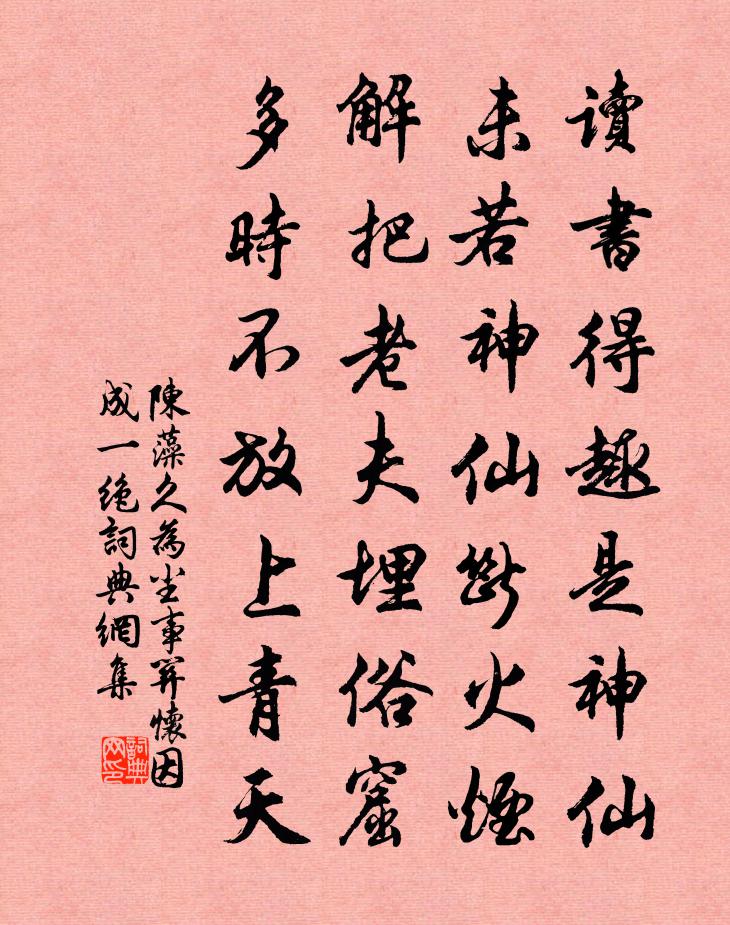 讀書得趣是神仙
未若神仙斷火煙
解把老夫埋俗窟
多時不放上青天
陳藻久為尘事罥懷因
成一絶詞典網集
詞典网印